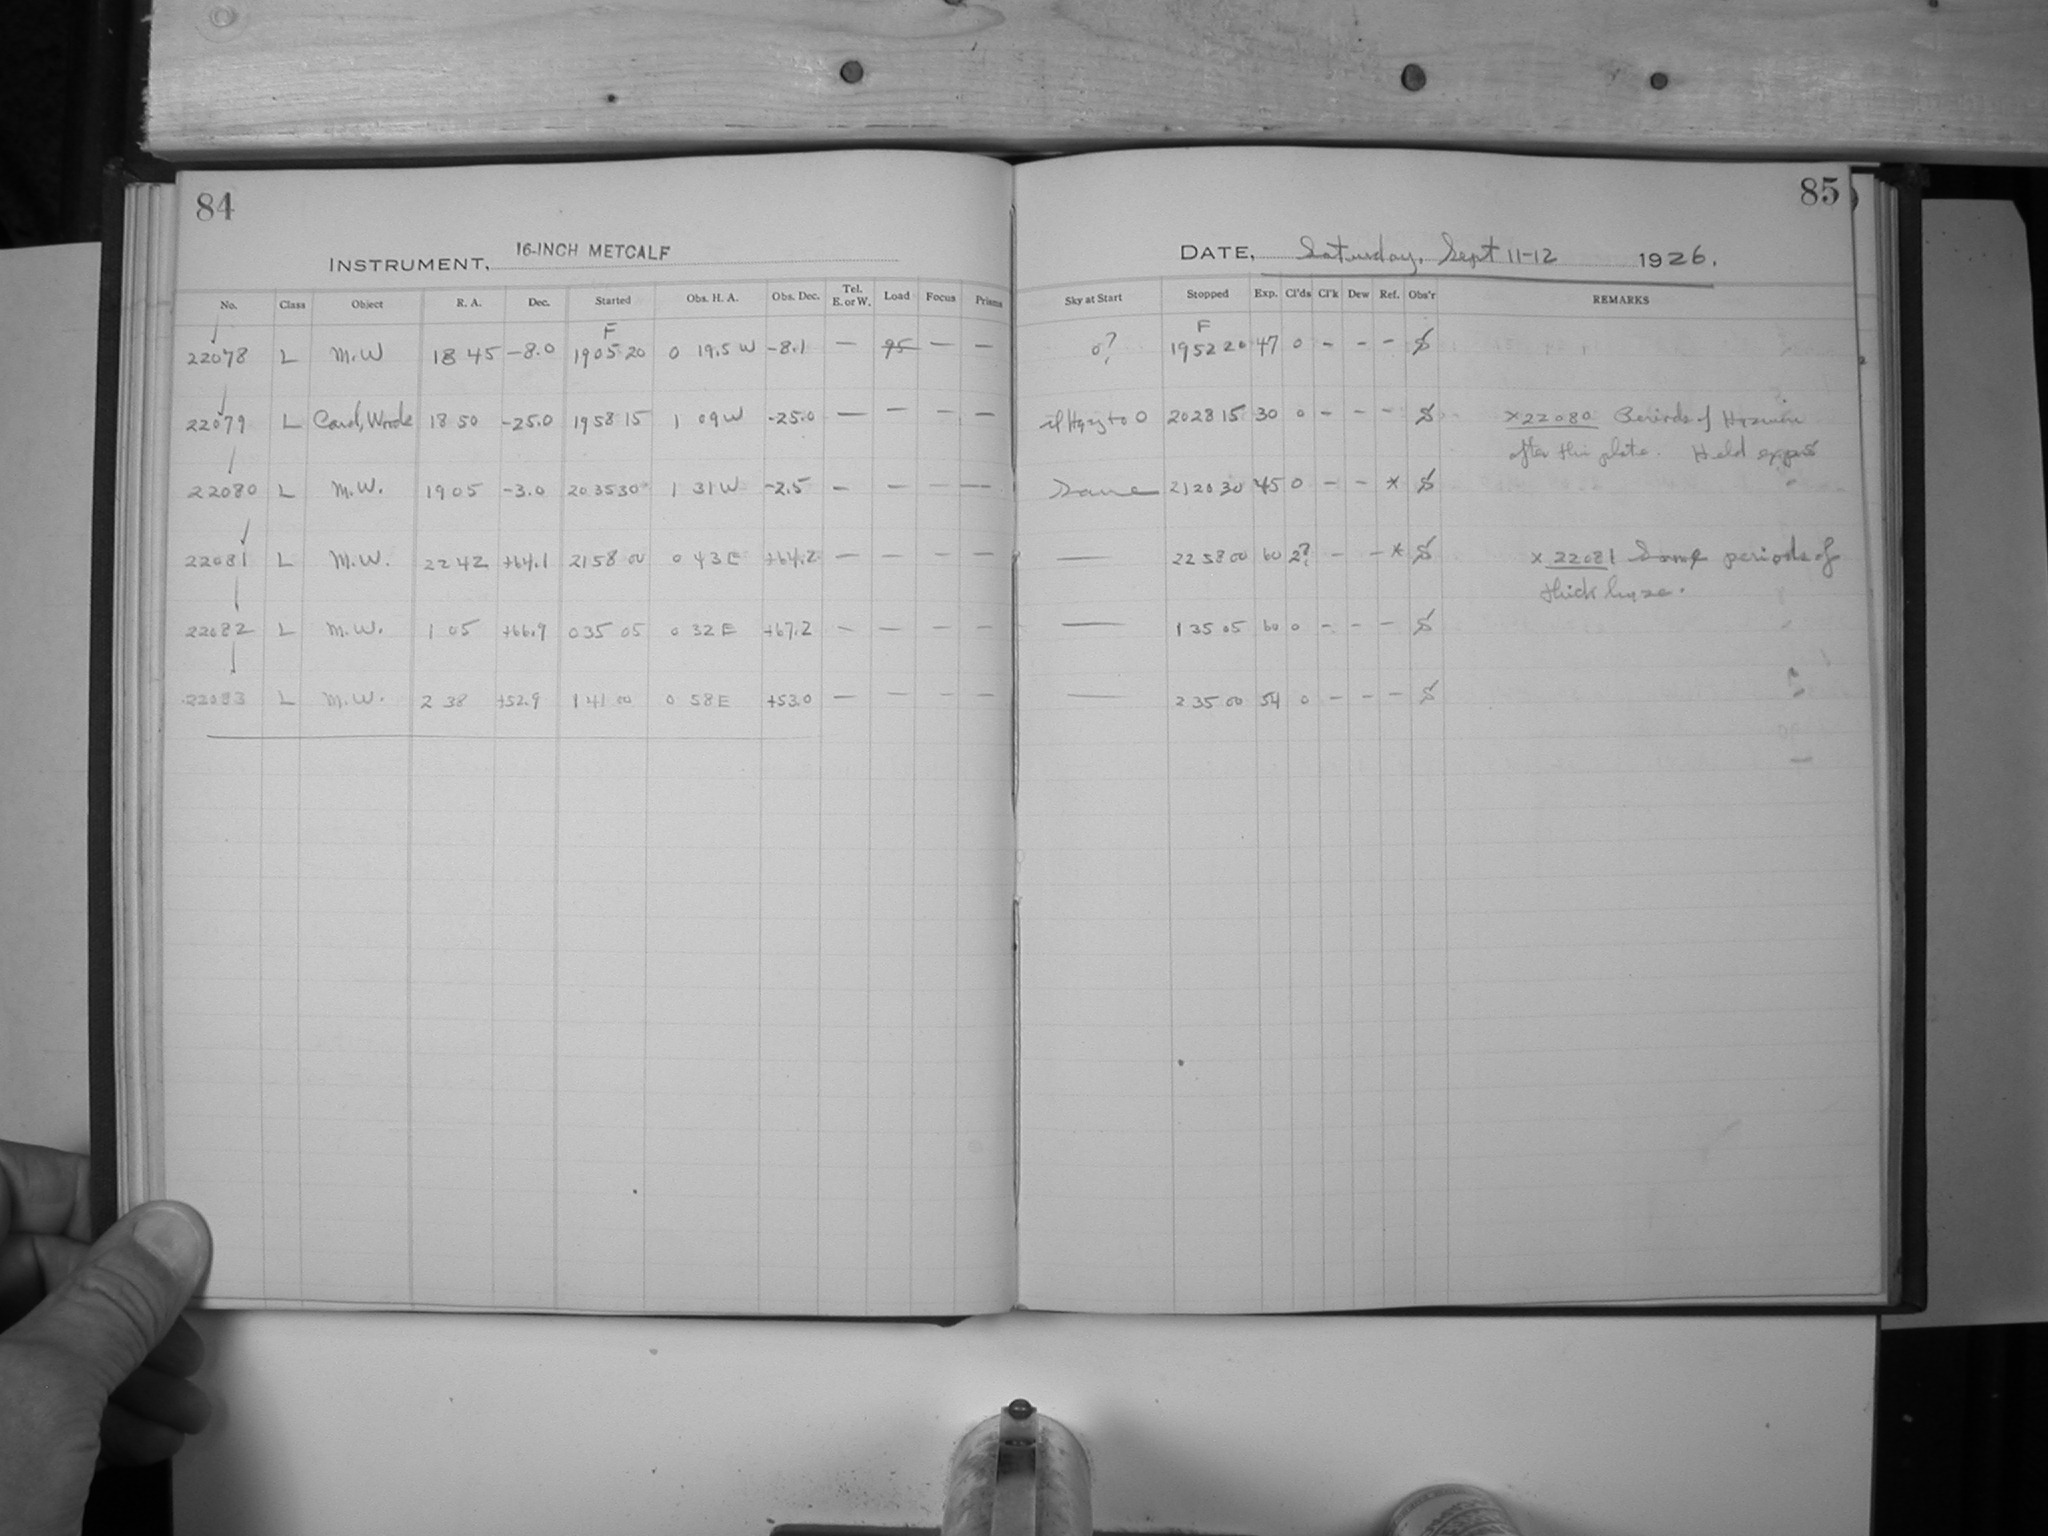 84
85
INSTRUMENT, 16-INCH METCALF
DATE, Saturday, Sept 11-12 1926.
No. Class Object R. A. Dec. Started Obs. H. A. Obs. Dec. Tel. E. or W. Load Focus Prisms Sky at Start Stopped Exp. Cl'ds Cl'k Dew Ref. Obs'r REMARKS
F F
22078 L M.W 18 45 -8.0 19 05 20 0 19.5 W -8.1 — 95 — — 0? 19 52 20 47 0 - - - S
22079 L 18 50 -25.0 19 58 15 1 09 W -25.0 — — — — Hazy to 0 20 28 15 30 0 - - - S x 22080 Periods of
after this plate. Held
22080 L M.W. 19 05 -3.0 20 35 30 1 31 W -2.5 — — — — Same 21 20 30 45 0 - - * S
22081 L M.W. 22 42 +64.1 21 58 00 0 43 E +64.2 — — — — — 22 58 00 60 2? - - * S x 22081 Some periods of
thick haze.
22082 L M.W. 1 05 +66.9 0 35 05 0 32 E +67.2 — — — — — 1 35 05 60 0 - - - S
22083 L M.W. 2 38 +52.9 1 41 00 0 58 E +53.0 — — — — — 2 35 00 54 0 - - - S